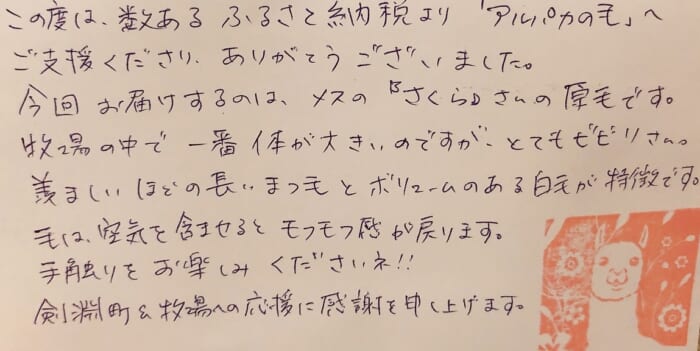 この度は、数ある ふるさと納税より 「アルパカの毛」へ
ご支援くださり、ありがとうございました。
今回 お届けするのは、メスの『さくら』さんの原毛です。
牧場の中で 一番 体が大きいのですが、とてもビビリさん。
羨ましいほどの長いまつ毛と ボリュームのある白毛が 特徴です。
毛は、空気を含ませると モフモフ感が戻ります。
手触りを お楽しみ くださいネ!!
剣淵町&牧場への応援に感謝を申し上げます。